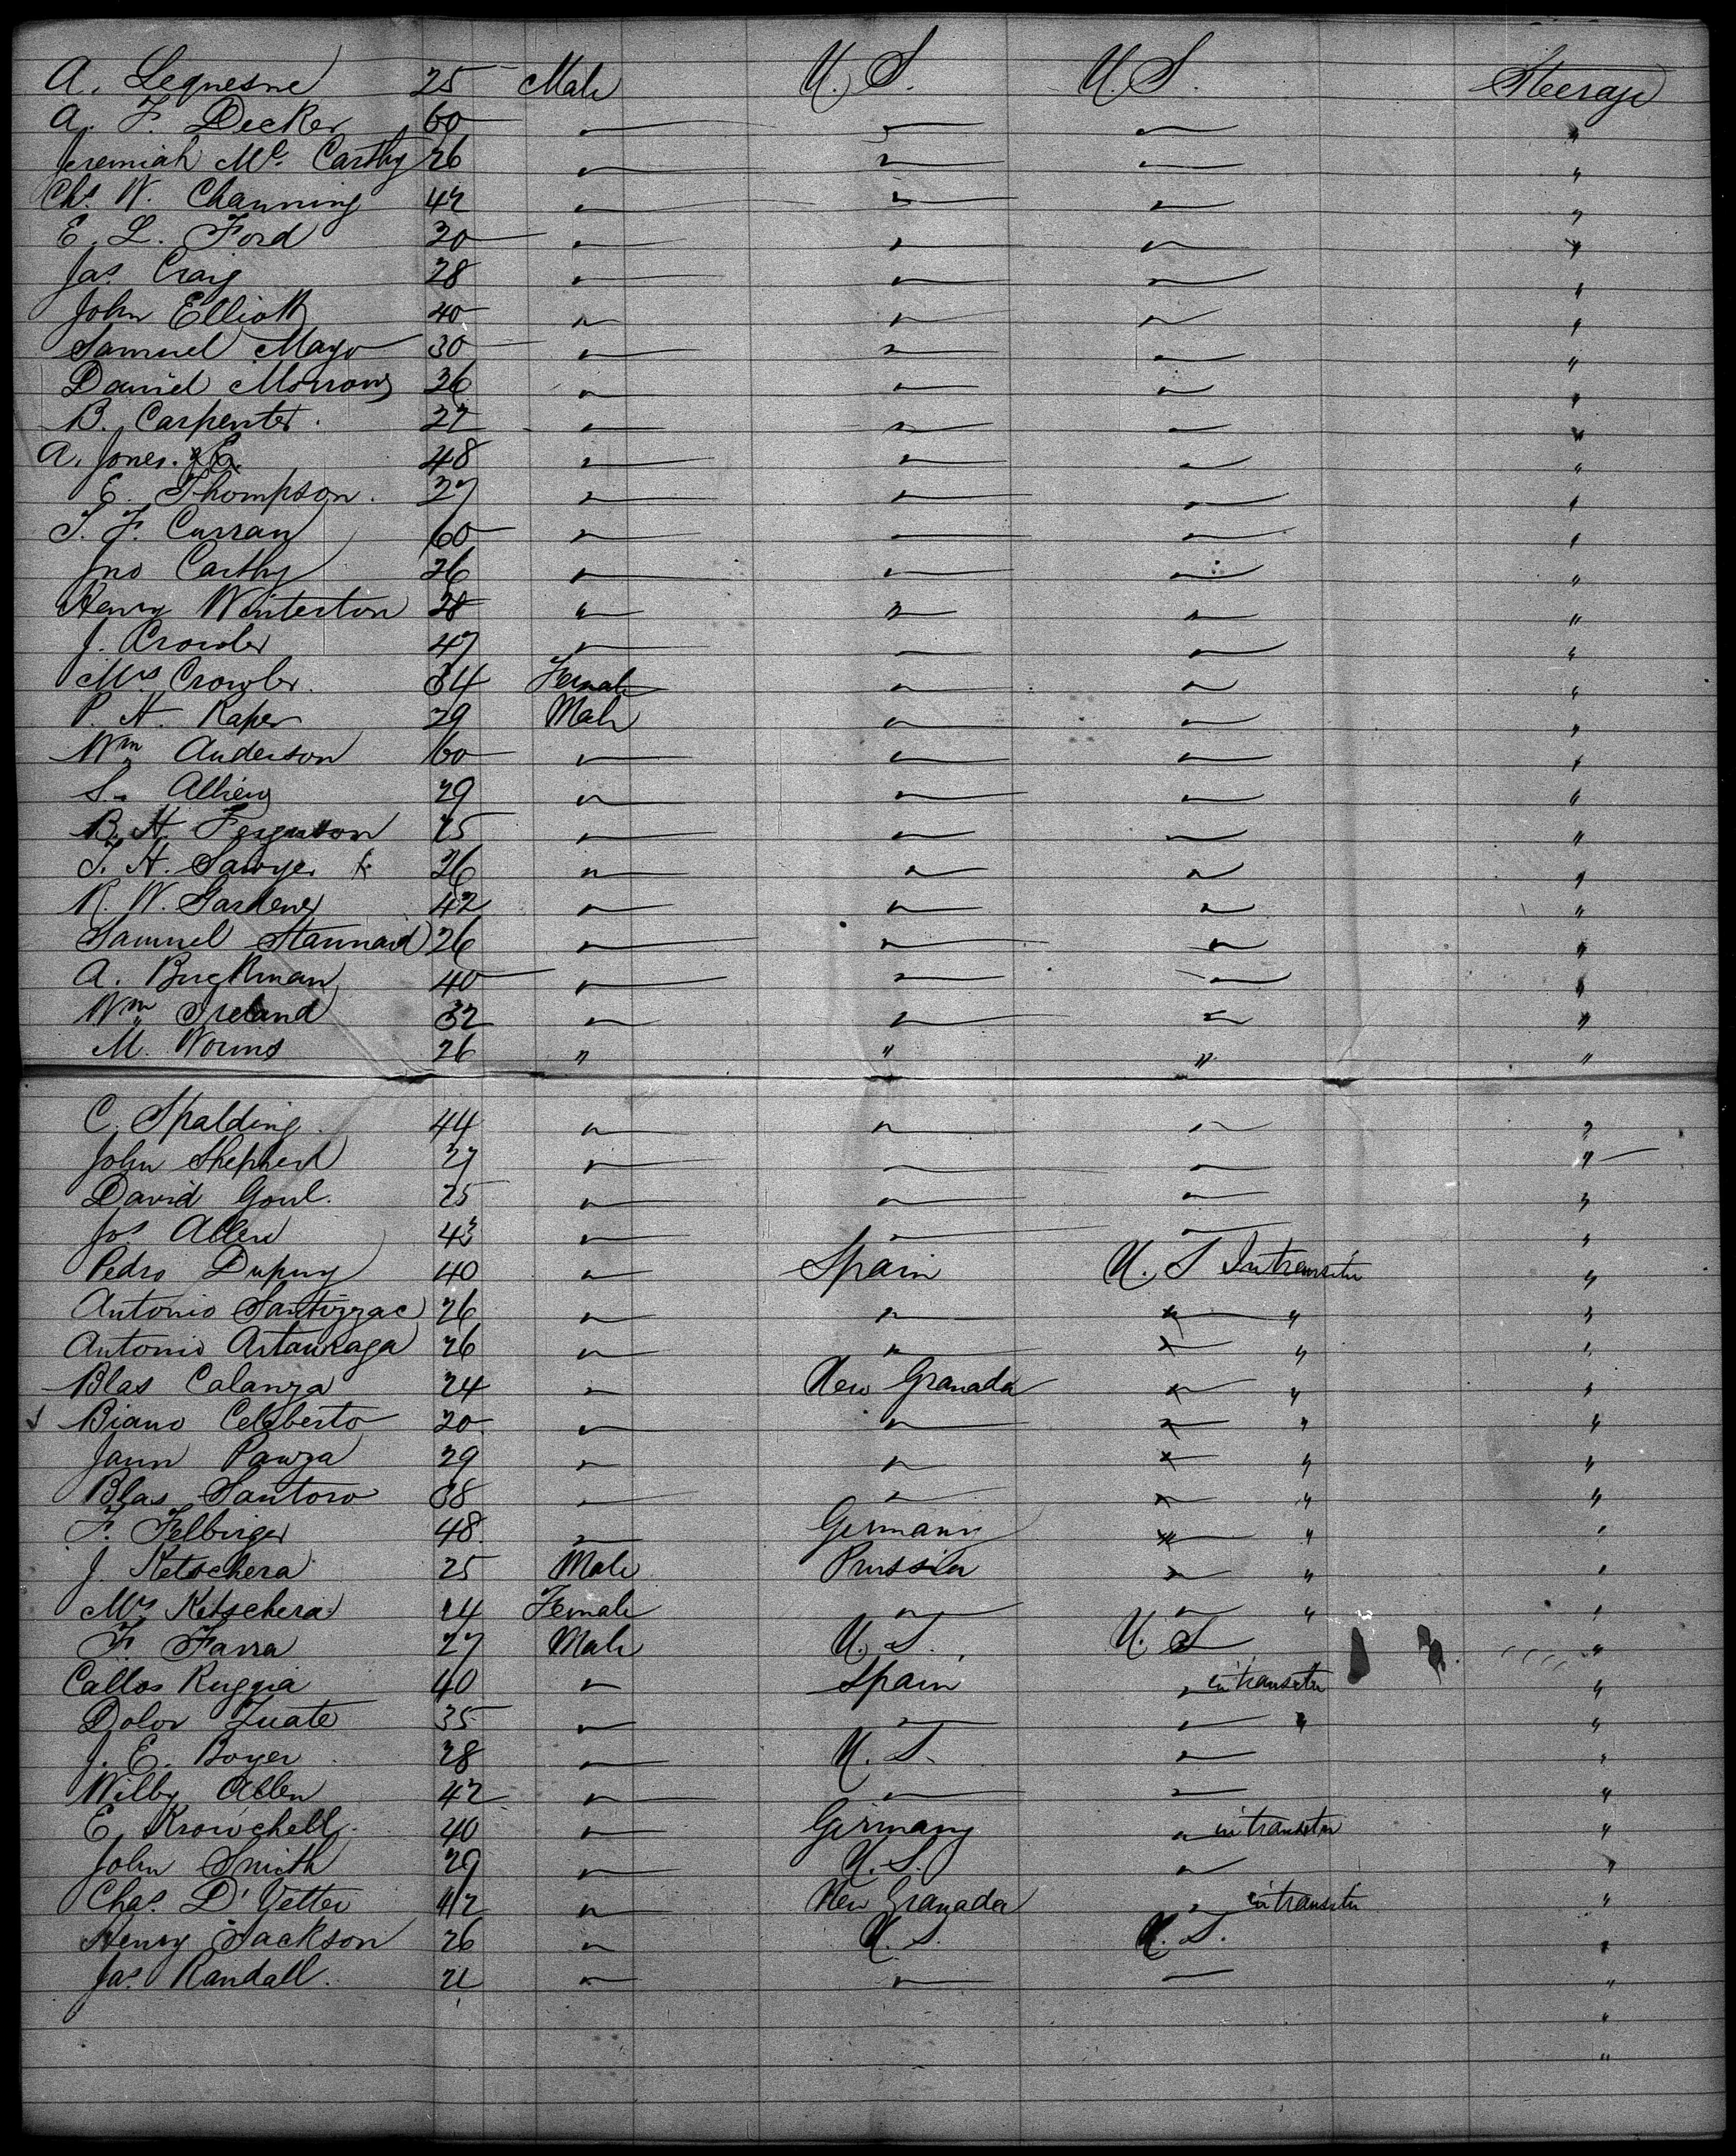 A. Lequesne 25 Male U.S. U.S. Steerage
A. F. Decker 60 " " " "
Jeremiah Mc Carthy 26 " " " "
Chs. W. Channing 42 " " " "
E. L. Ford 30 " " " "
Jas Craig 28 " " " "
John Elliott 40 " " " "
Samuel Mayo 30 " " " "
Daniel Morrow 36 " " " "
B. Carpenter. 22 " " " "
A. Jones. 48 " " " "
E. Thompson. 27 " " " "
T. F. Curran 60 " " " "
Jno Carthy 26 " " " "
Henry Winterton 28 " " " "
J. Crowler 47 " " " "
Mrs Crowler. 34 Female " " "
P. H. Raper 29 Male " " "
Wm Anderson 60 " " " "
S. 29 " " " "
B. H. Ferguson 25 " " " "
T. H. Sawyer 26 " " " "
R. W. Gardener 42 " " " "
Samuel Stannard 26 " " " "
A. Bugkman 40 " " " "
Wm Ireland 32 " " " "
M. Worms 26 " " " "
C. Spalding. 44 " " " "
John Shepherd 27 " " " "
David Goul. 25 " " " "
Jos Allen 43 " " " "
Pedro Dupuy 40 " Spain U.S Intransitu "
Antonio Santizzac 26 " " " " "
Antonio Astauraga 26 " " " " "
Blas Calanza 24 " New Granada " " "
Biano Celeberto 20 " " " " "
Jaun Pawza 29 " " " " "
Blas Santoro 38 " " " " "
F. Felbinger 48 " Germany " " "
J. Ketschera 25 Male Prussia " " "
Mrs Ketschera 24 Female " " " "
F. Farra 27 Male U.S. U.S "
Callos Ruggia 40 " Spain " in transitu "
Dolor Zuate 35 " " " " "
J. E. Boyer 28 " U.S. " "
Wilby Allen 42 " " " "
E. Krowchell. 40 " Germany " in transitu "
John Smith 29 " U.S. " "
Chas. D'Vetter 42 " New Granada " in transitu "
Henry Jackson 26 " U.S. U.S. "
Jas Randall. 21 " " " "
"
"